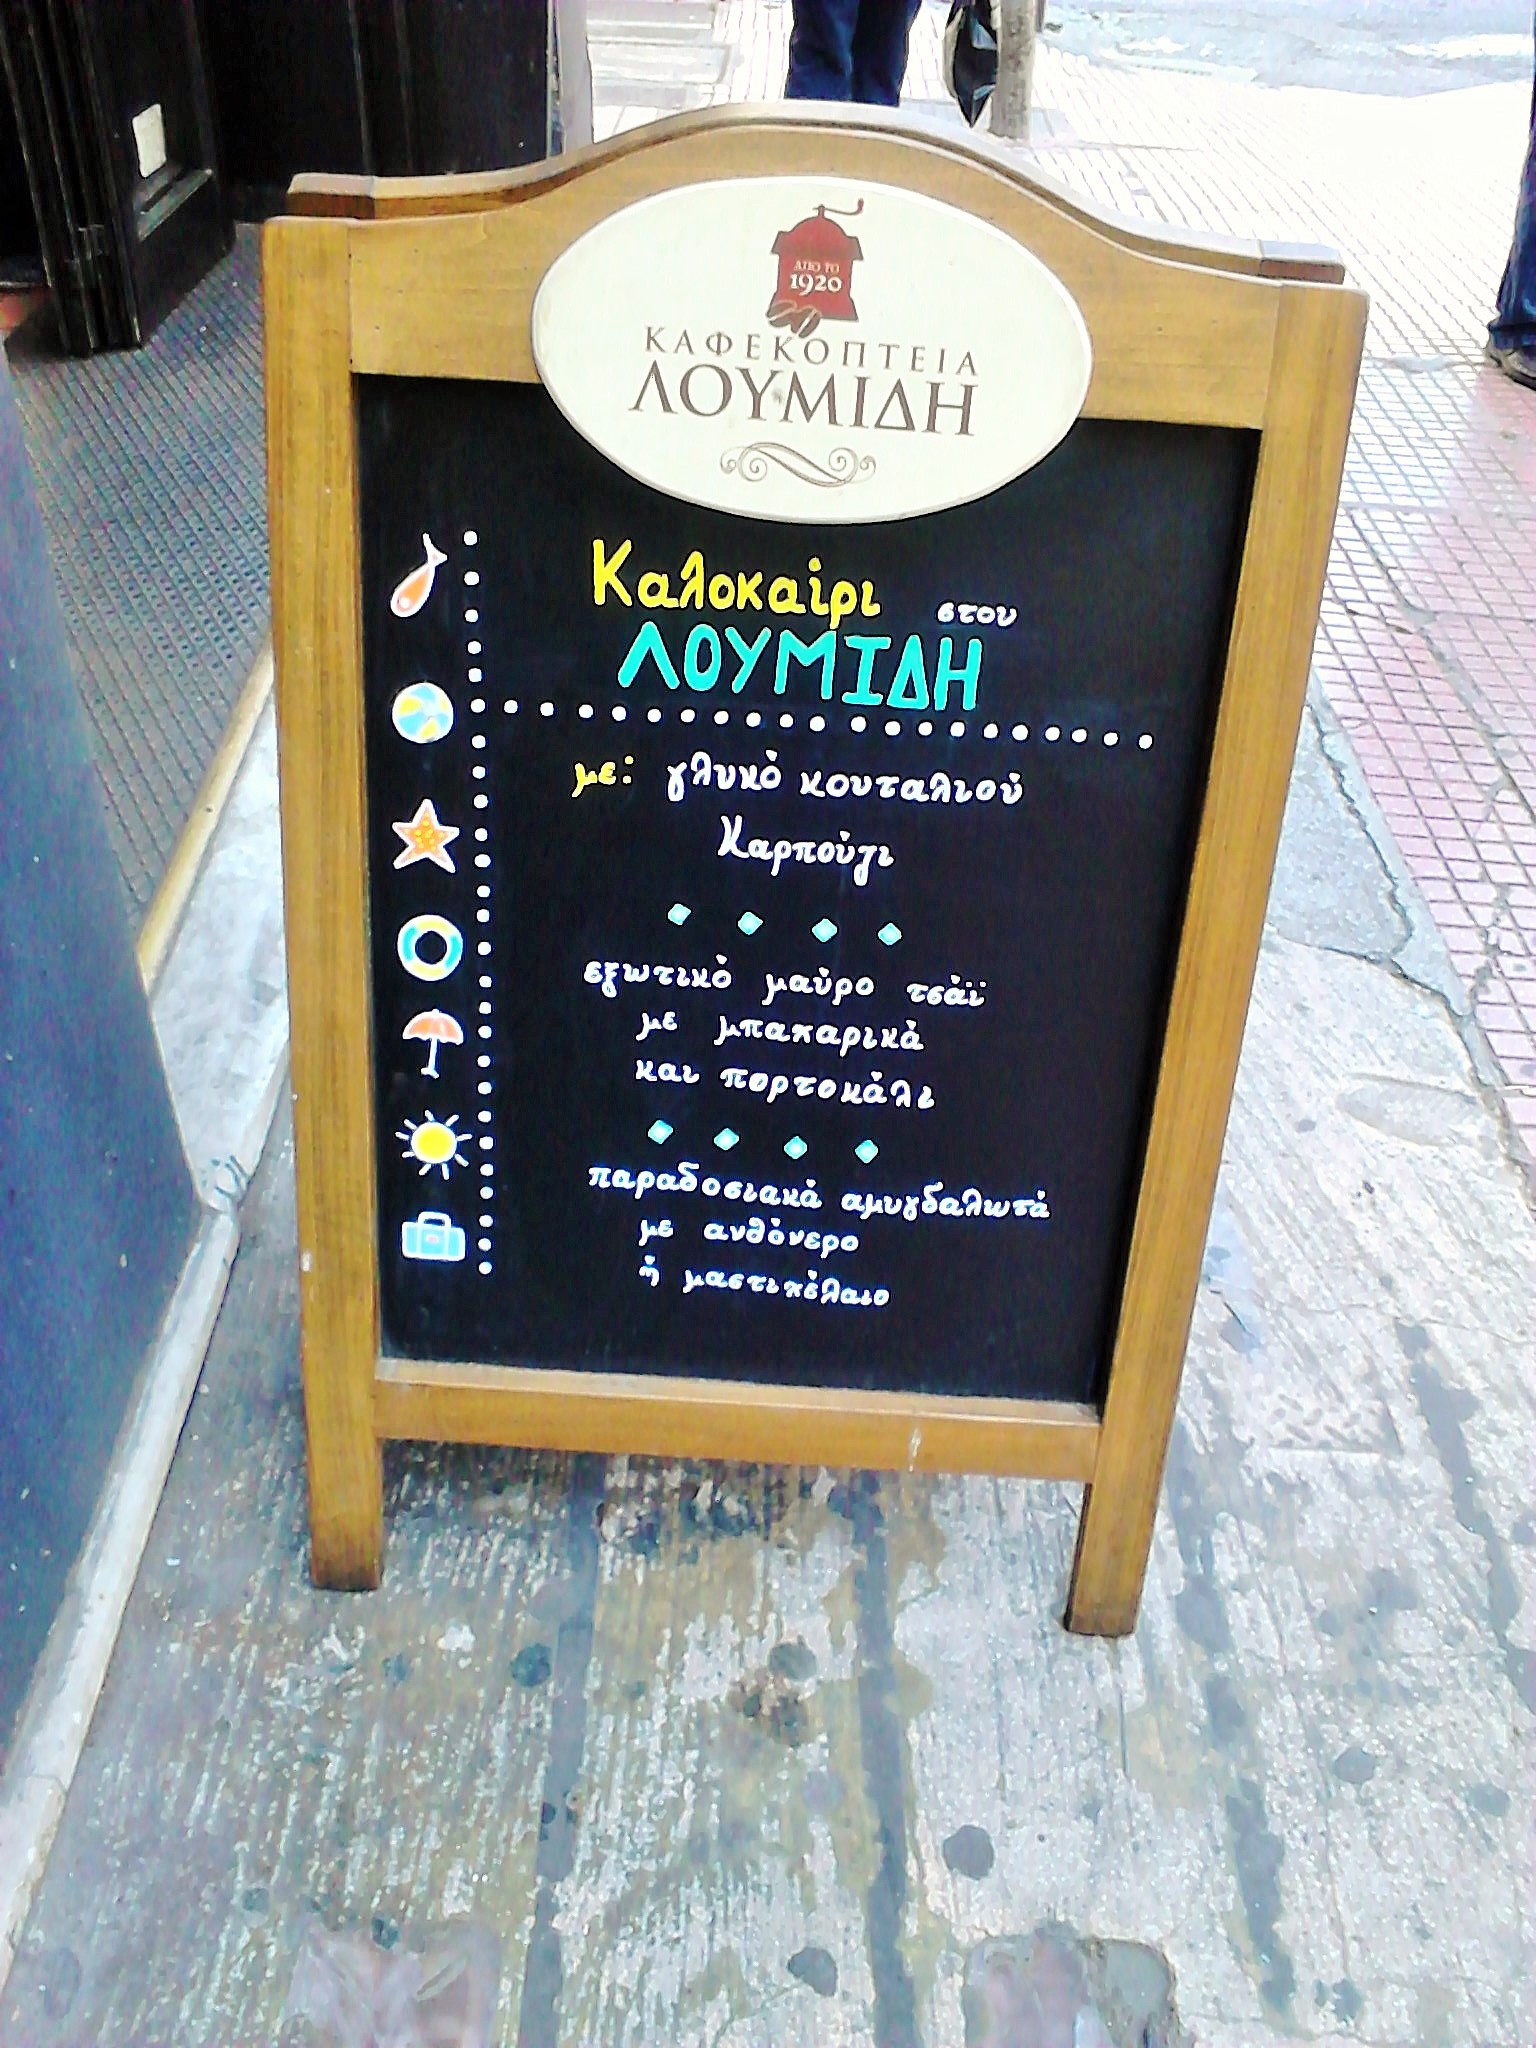 ΑΠΟ ΤΟ
1920
ΚΑΦΕΚΟΠΤΕΙΑ
ΛΟΥΜΙΔΗ
Καλοκαίρι στου
ΛΟΥΜΙΔΗ
με: γλυκό κουταλιού
Καρπούζι
εξωτικό μαύρο τσάϊ
με μπαχαρικά
και πορτοκάλι
παραδοσιακά αμυγδαλωτά
με ανθόνερο
ή μαστιχέλαιο